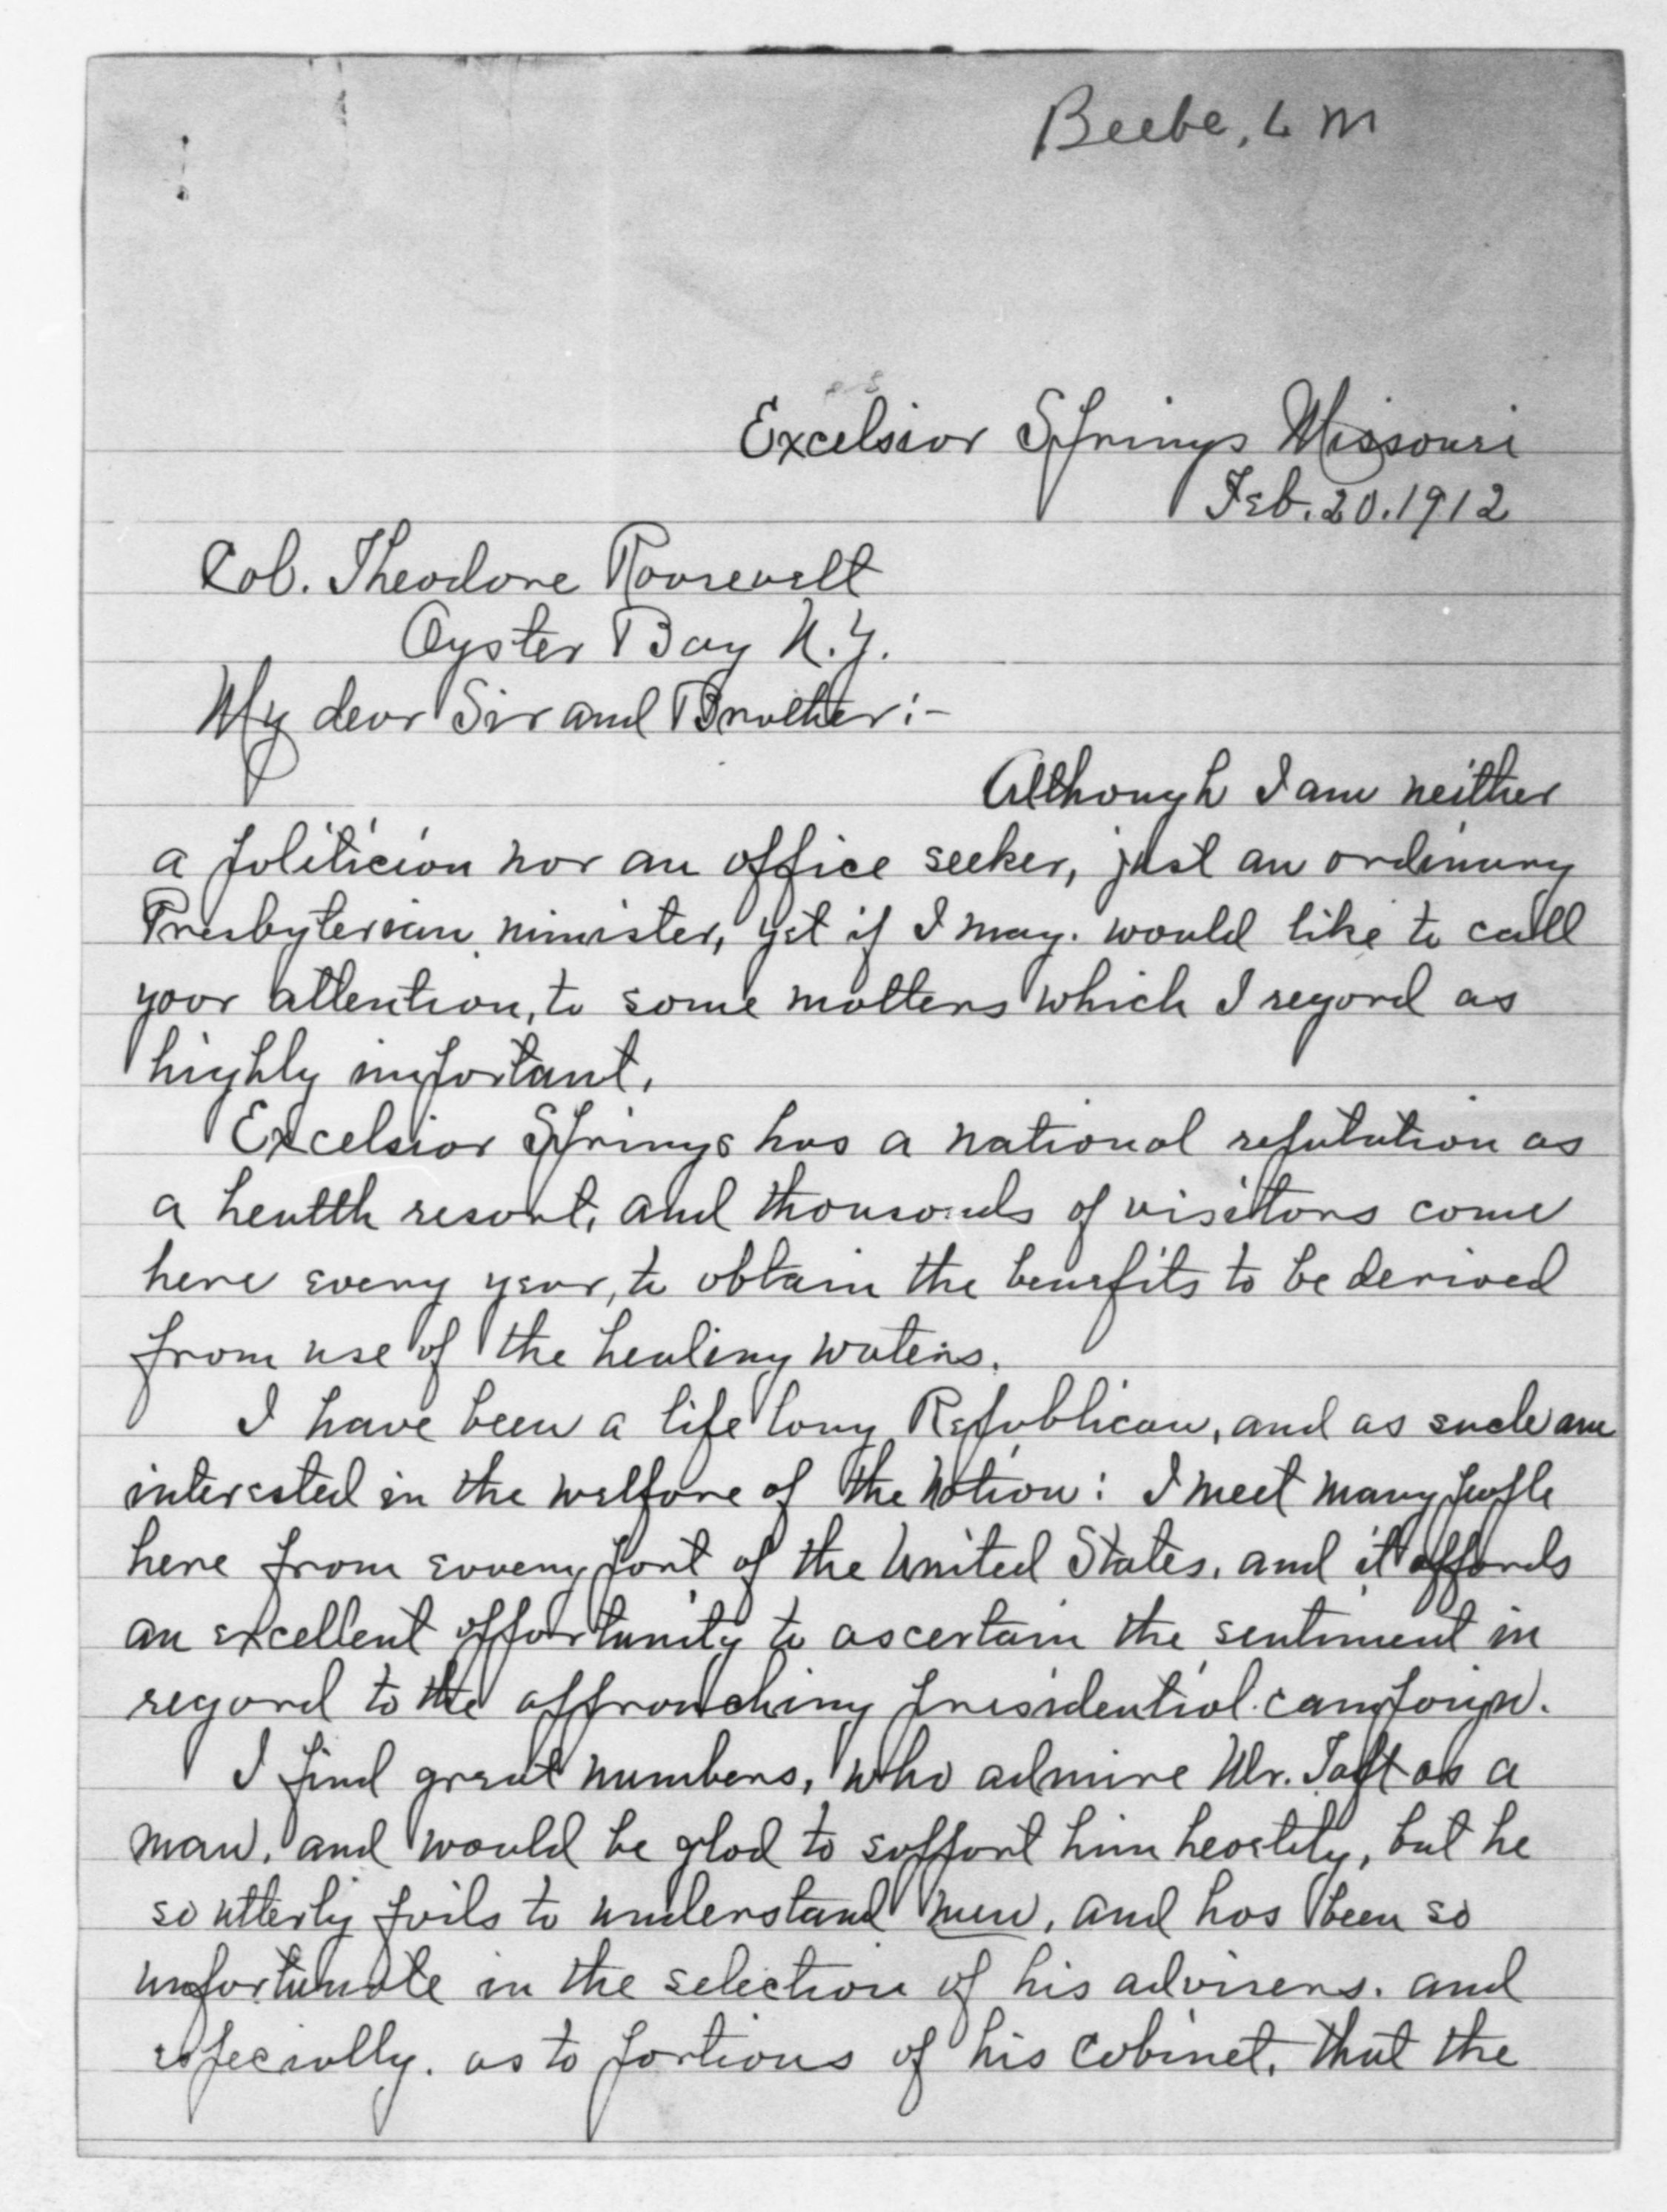 Beebe, L M
Excelsior Springs Missouri
Feb. 20. 1912
Col. Theodore Roosevelt
Oyster Bay N.Y.
My dear Sir and Brother:-
Although I am neither
a politician nor an office seeker, just an ordinary
Presbyterian minister, yet if I may. would like to call
your attention, to some matters which I regard as
highly important.
Excelsior Springs has a national reputation as
a health resort, and thousands of visitors come
here every year, to obtain the benefits to be derived
from use of the healing waters.
I have been a life long Republican, and as such am
interested in the welfare of the Nation: I meet many people
here from every part of the United States, and it affords
an excellent opportunity to ascertain the sentiment in
regard to the approaching presidential campaign.
I find great numbers, who admire Mr. Taft as a
man, and would be glad to support him heartily, but he
so utterly fails to understand men, and has been so
unfortunate in the selection of his advisers. and
especially. as to portions of his Cabinet, that the